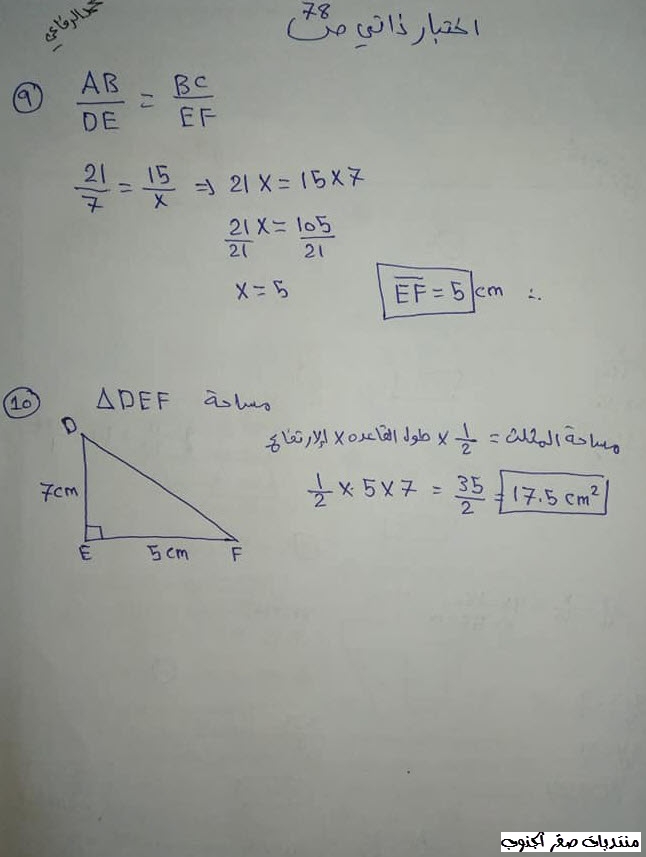 محمد الرفاعي
اختبار ذاتي ص 78
9 AB/DE = BC/EF
21/7 = 15/x ⇒ 21 x = 15 x 7
21 x/21 = 105/21
x = 5
EF = 5 cm ∴
10 △DEF مساحة
مساحة المثلث = 1/2 x طول القاعده x الارتفاع
1/2 x 5 x 7 = 35/2 = 17.5 cm²
D
7cm
E 5cm F
منتديات صقر الجنوب